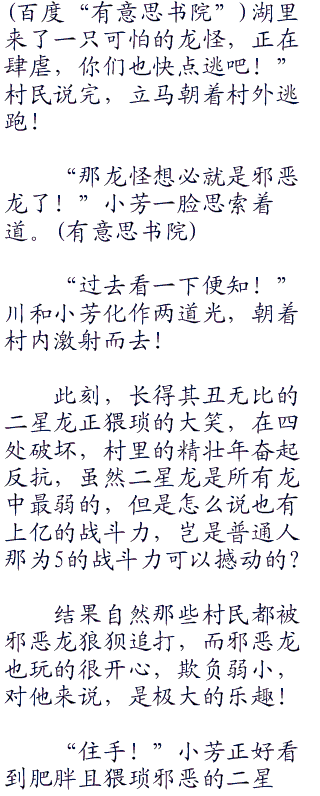 (百度“有意思书院”)湖里
来了一只可怕的龙怪，正在
肆虐，你们也快点逃吧！”
村民说完，立马朝着村外逃
跑！
“那龙怪想必就是邪恶
龙了！”小芳一脸思索着
道。(有意思书院)
“过去看一下便知！”
川和小芳化作两道光，朝着
村内激射而去！
此刻，长得其丑无比的
二星龙正猥琐的大笑，在四
处破坏，村里的精壮年奋起
反抗，虽然二星龙是所有龙
中最弱的，但是怎么说也有
上亿的战斗力，岂是普通人
那为5的战斗力可以撼动的？
结果自然那些村民都被
邪恶龙狼狈追打，而邪恶龙
也玩的很开心，欺负弱小，
对他来说，是极大的乐趣！
“住手！”小芳正好看
到肥胖且猥琐邪恶的二星